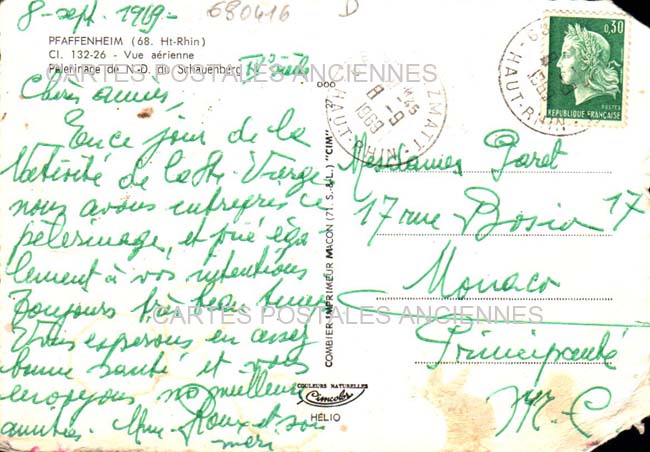 8-sept. 1969-
680416
D
PFAFFENHEIM (68. Ht-Rhin)
Cl. 132-26 - Vue aérienne
Pèlerinage de N.-D. du Schauenberg
Chères amies,
En ce jour de la
Nativité de la Ste Vierge
nous avons entrepris ce
pèlerinage, et prié éga-
lement à vos intentions
Toujours très beau temps
Vous espérons en assez
bonne santé et vous
envoyons nos meilleures
amitiés. Mme Roux et son
mari
COMBIER IMPRIMEUR MACON (71. S.-&-L.) "CIM"
COULEURS NATURELLES
Cimcolor
HÉLIO
HAUT-RHIN
8-9
1969
0,30
POSTES
REPUBLIQUE FRANÇAISE
HAUT-RHIN
Mesdames Paret
17 rue Bosio 17
Monaco
Principauté
M-C
CARTES POSTALES ANCIENNES
CARTES POSTALES ANCIENNES